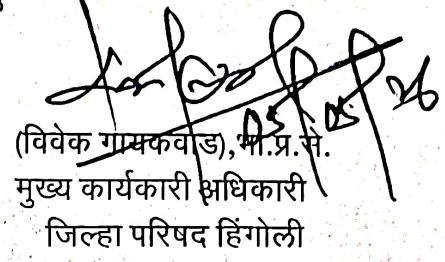 05/05/26
(विवेक गायकवाड),भा.प्र.से.
मुख्य कार्यकारी अधिकारी
जिल्हा परिषद हिंगोली